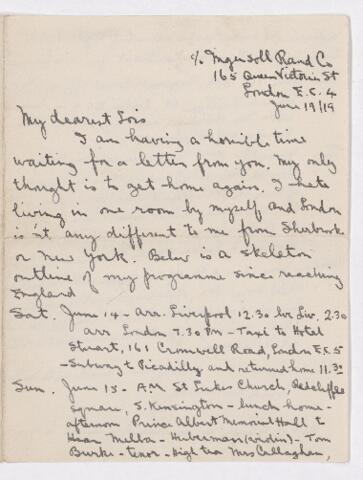 c/o Ingersoll Rand Co
165 Queen Victoria St
London E.C. 4
June 19/19
My dearest Lois
I am having a horrible time
waiting for a letter from you. My only
thought is to get home again. I hate
living in one room by myself and London
is'nt any different to me from Sherbrooke
or New York. Below is a skeleton
outline of my programme since reaching
England
Sat. June 14 - Arr. Liverpool 12.30 lv Liv. 2.30
arr London 7.30 PM - Taxi to Hotel
Stuart, 161 Cromwell Road, London E.C. 5
- Subway to Picadilly and returned home 11.30
Sun. June 15 - A.M. St Lukes Church, Redcliffe
square, S. Kensington - lunch home -
afternoon Prince Albert Memorial Hall to
Hear Melba - Huberman (violin) - Tom
Burke - tenor - High tea Mrs Callaghan,